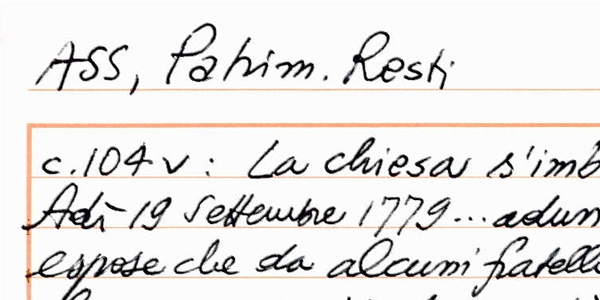 ASS, Patrim. Resti
c.104v: La chiesa s'imb
Adì 19 Settembre 1779... adun
espose che da alcuni fratelli